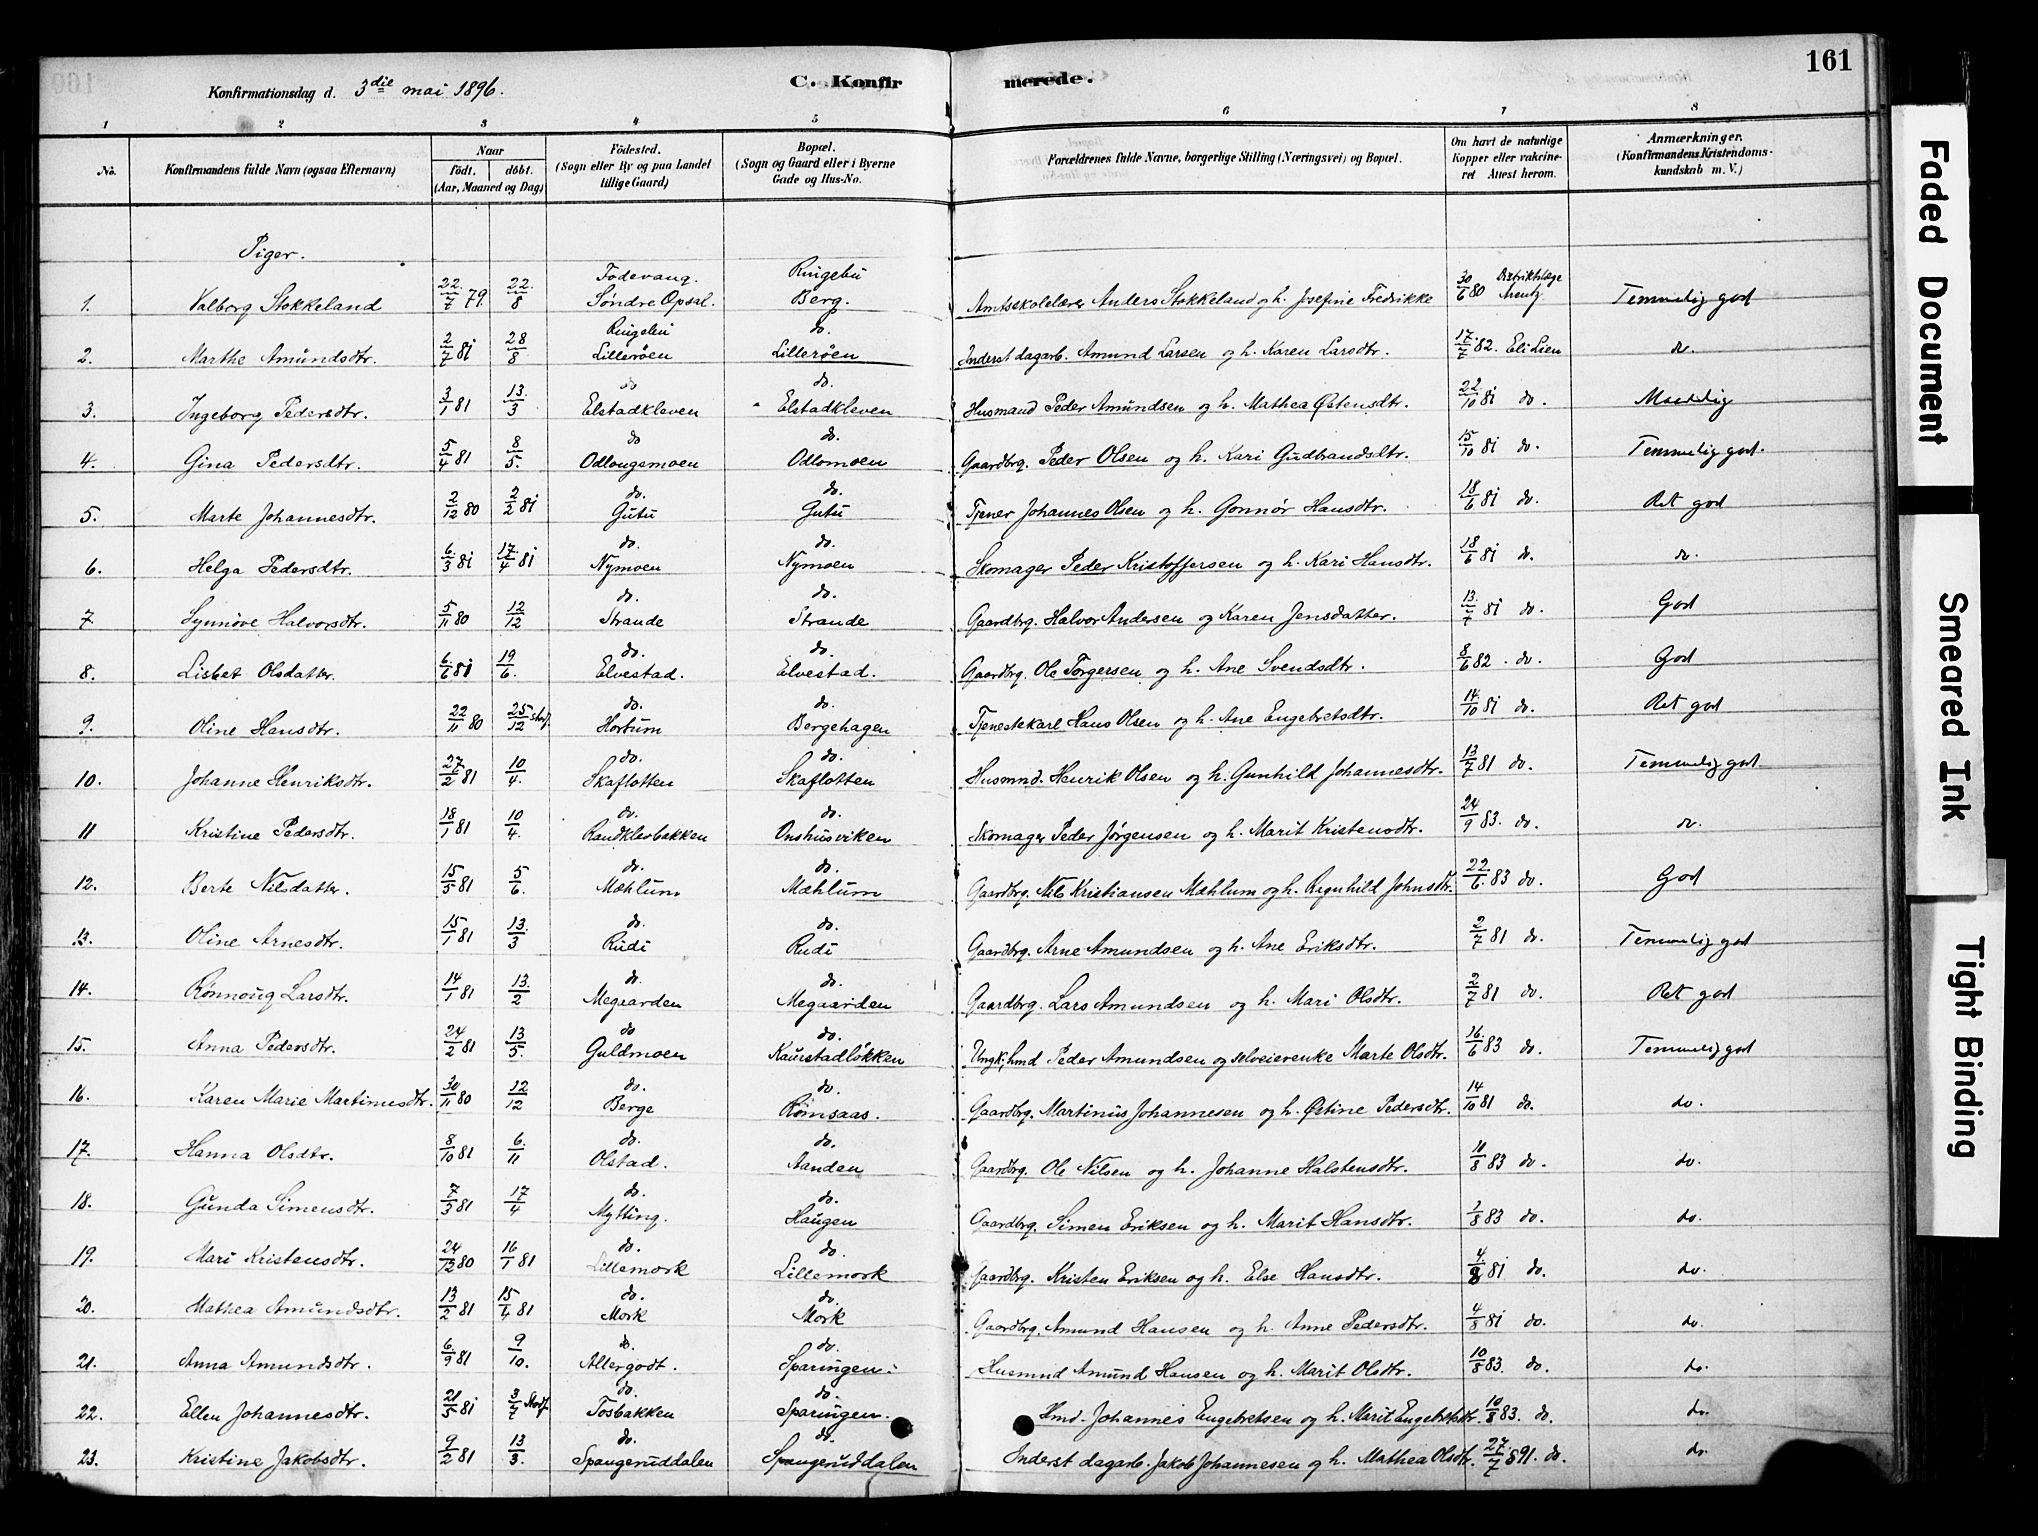 161
Konfirmationsdag d. 3die mai 1896.
C. Konfirmerede.
1 2 3 4 5 6 7 8
No. | Konfirmandens fulde Navn (ogsaa Efternavn) | Naar født. døbt. (Aar, Maaned og Dag) | Fødested. (Sogn eller By og paa Landet tillige Gaard) | Bopæl. (Sogn og Gaard eller i Byerne Gade og Hus-No. | Forældrenes fulde Navne, borgerlige Stilling (Næringsvei) og Bopæl. | Om havt de naturlige Kopper eller vakcineret Attest herom. | Anmærkninger. (Konfirmandens Kristendomskundskab m. V.)
Piger.
1. Valborg Stokkeland 22/7 79 22/8 Fodevang. Søndre Opsal. Ringebu Berg. Amtsskolelærer Anders Stokkeland og h. Josefine Fredrikke 30/6 80 Distriktslæge Arentz Temmelig god
2. Marthe Amundsdtr. 2/7 81 28/8 Ringebu Lillerøen do. Lillerøen Inderst dagarb. Amund Larsen og h. Karen Larsdtr. 17/7 82. Eli Lien do.
3. Ingeborg Pedersdtr. 3/1 81 13/3 do Elstadkleven do. Elstadkleven Husmand Peder Amundsen og h. Mathea Østensdtr. 22/10 81 do. Maadelig
4. Gina Pedersdtr. 5/4 81 8/5. do Odlougsmoen do. Odlomoen Gaardbrg. Peder Olsen og h. Kari Gudbrandsdtr. 15/10 81 do. Temmelig god.
5. Marte Johannesdtr. 2/12 80 2/2 81 do. Gutu do. Gutu Tjener Johannes Olsen og h. Gonnør Hansdtr. 18/6 81 do. Ret god
6. Helga Pedersdtr. 6/3 81 17/4 81 do. Nymoen do. Nymoen Skomager Peder Kristoffersen og h. Kari Hansdtr. 18/6 81 do. do.
7 Synnøve Halvorsdtr. 5/11 80 12/12 do. Strande do. Strande Gaardbrg. Halvor Andersen og Karen Jensdatter. 13/7 81 do. God
8. Lisbet Olsdatter. 6/6 81 19/6. do. Elvestad. do. Elvestad. Gaardbrg. Ole Torgersen og h. Ane Svendsdtr. 8/6 82. do. God
9. Oline Hansdtr. 22/11 80 25/12 do. Hortum do. Bergehagen Tjenestekarl Hans Olsen og h. Ane Engebretsdtr. 14/10 81 do. Ret god
10. Johanne Henriksdtr. 27/2 81 10/4. do. Skaflotten do. Skaflotten Husmnd. Henrik Olsen og h. Gunhild Johannesdtr. 13/7 81 do. Temmelig god
11 Kristine Pedersdtr. 18/1 81 10/4. do. Randklevbakken do. Onshusviken Skomager Peder Jørgensen og h. Marit Kristensdtr. 24/9 83. do. do.
12. Berte Nilsdatter. 15/5 81 5/6. do. Mæhlum do. Mæhlum Gaardbrg. Nils Kristiansen Mæhlum og h. Ragnhild Johnsdtr. 22/6. 83 do. God
13. Oline Arnesdtr. 15/1 81 13/3 do. Rudi do. Rudi Gaardbrg. Arne Amundsen og h. Ane Eriksdtr. 2/7 81 do. Temmelig god
14. Rønnoug Larsdtr. 14/1 81 13/2 do. Megaarden do. Megaarden Gaardbrg. Lars Amundsen og h. Mari Olsdtr. 2/7 81 do. Ret god
15. Anna Pedersdtr. 24/2 81 13/5. do Guldmoen do. Kaurstadløkken Ungk; hmd Peder Amundsen og selveierenke Marte Olsdtr. 16/6 83 do. Temmelig god
16. Karen Marie Martinusdtr. 30/11 80 12/12 do. Berge do. Rømsaas. Gaardbrg. Martinus Johannesen og h. Østine Pedersdtr. 14/10 81 do. do.
17. Hanna Olsdtr. 8/10 81 6/11 do. Olstad. do. Aanden Gaardbrg. Ole Nilsen og h. Johanne Halstensdtr. 10/8 83 do. do.
18. Gunda Simensdtr. 7/3 81 17/4 do. Mytting. do. Haugen Gaardbrg. Simen Eriksen og h. Marit Hansdtr. 1/8 83 do. do.
19. Mari Kristensdtr. 24/12 80 16/1 81 do. Lillemork do. Lillemork Gaardbrg. Kristen Eriksen og h. Else Hansdtr. 4/8 81 do. do.
20. Mathea Amundsdtr. 13/2 81 15/4 81 do. Mork do. Mork Gaardbrg. Amund Hansen og h. Anne Pedersdtr. 4/8 81 do. do.
21. Anna Amundsdtr. 6/9 81 9/10. do. Allergodt. do. Sparingen. Husmnd Amund Hansen og h. Marit Olsdtr. 10/8 83. do. do.
22. Ellen Johannesdtr. 21/5 81 3/7 do. Tosbakken do. Sparingen. Hmd. Johannes Engebretsen og h. Marit Engebretsdtr. 10/8 83. do. do.
23. Kristine Jakobsdtr. 9/2 81 13/3. do. Spangeruddalen do. Spangeruddalen Inderst dagarb. Jakob Johannesen og h. Mathea Olsdtr. 27/7 891. do. do.
Faded Document
Smeared Ink
Tight Binding